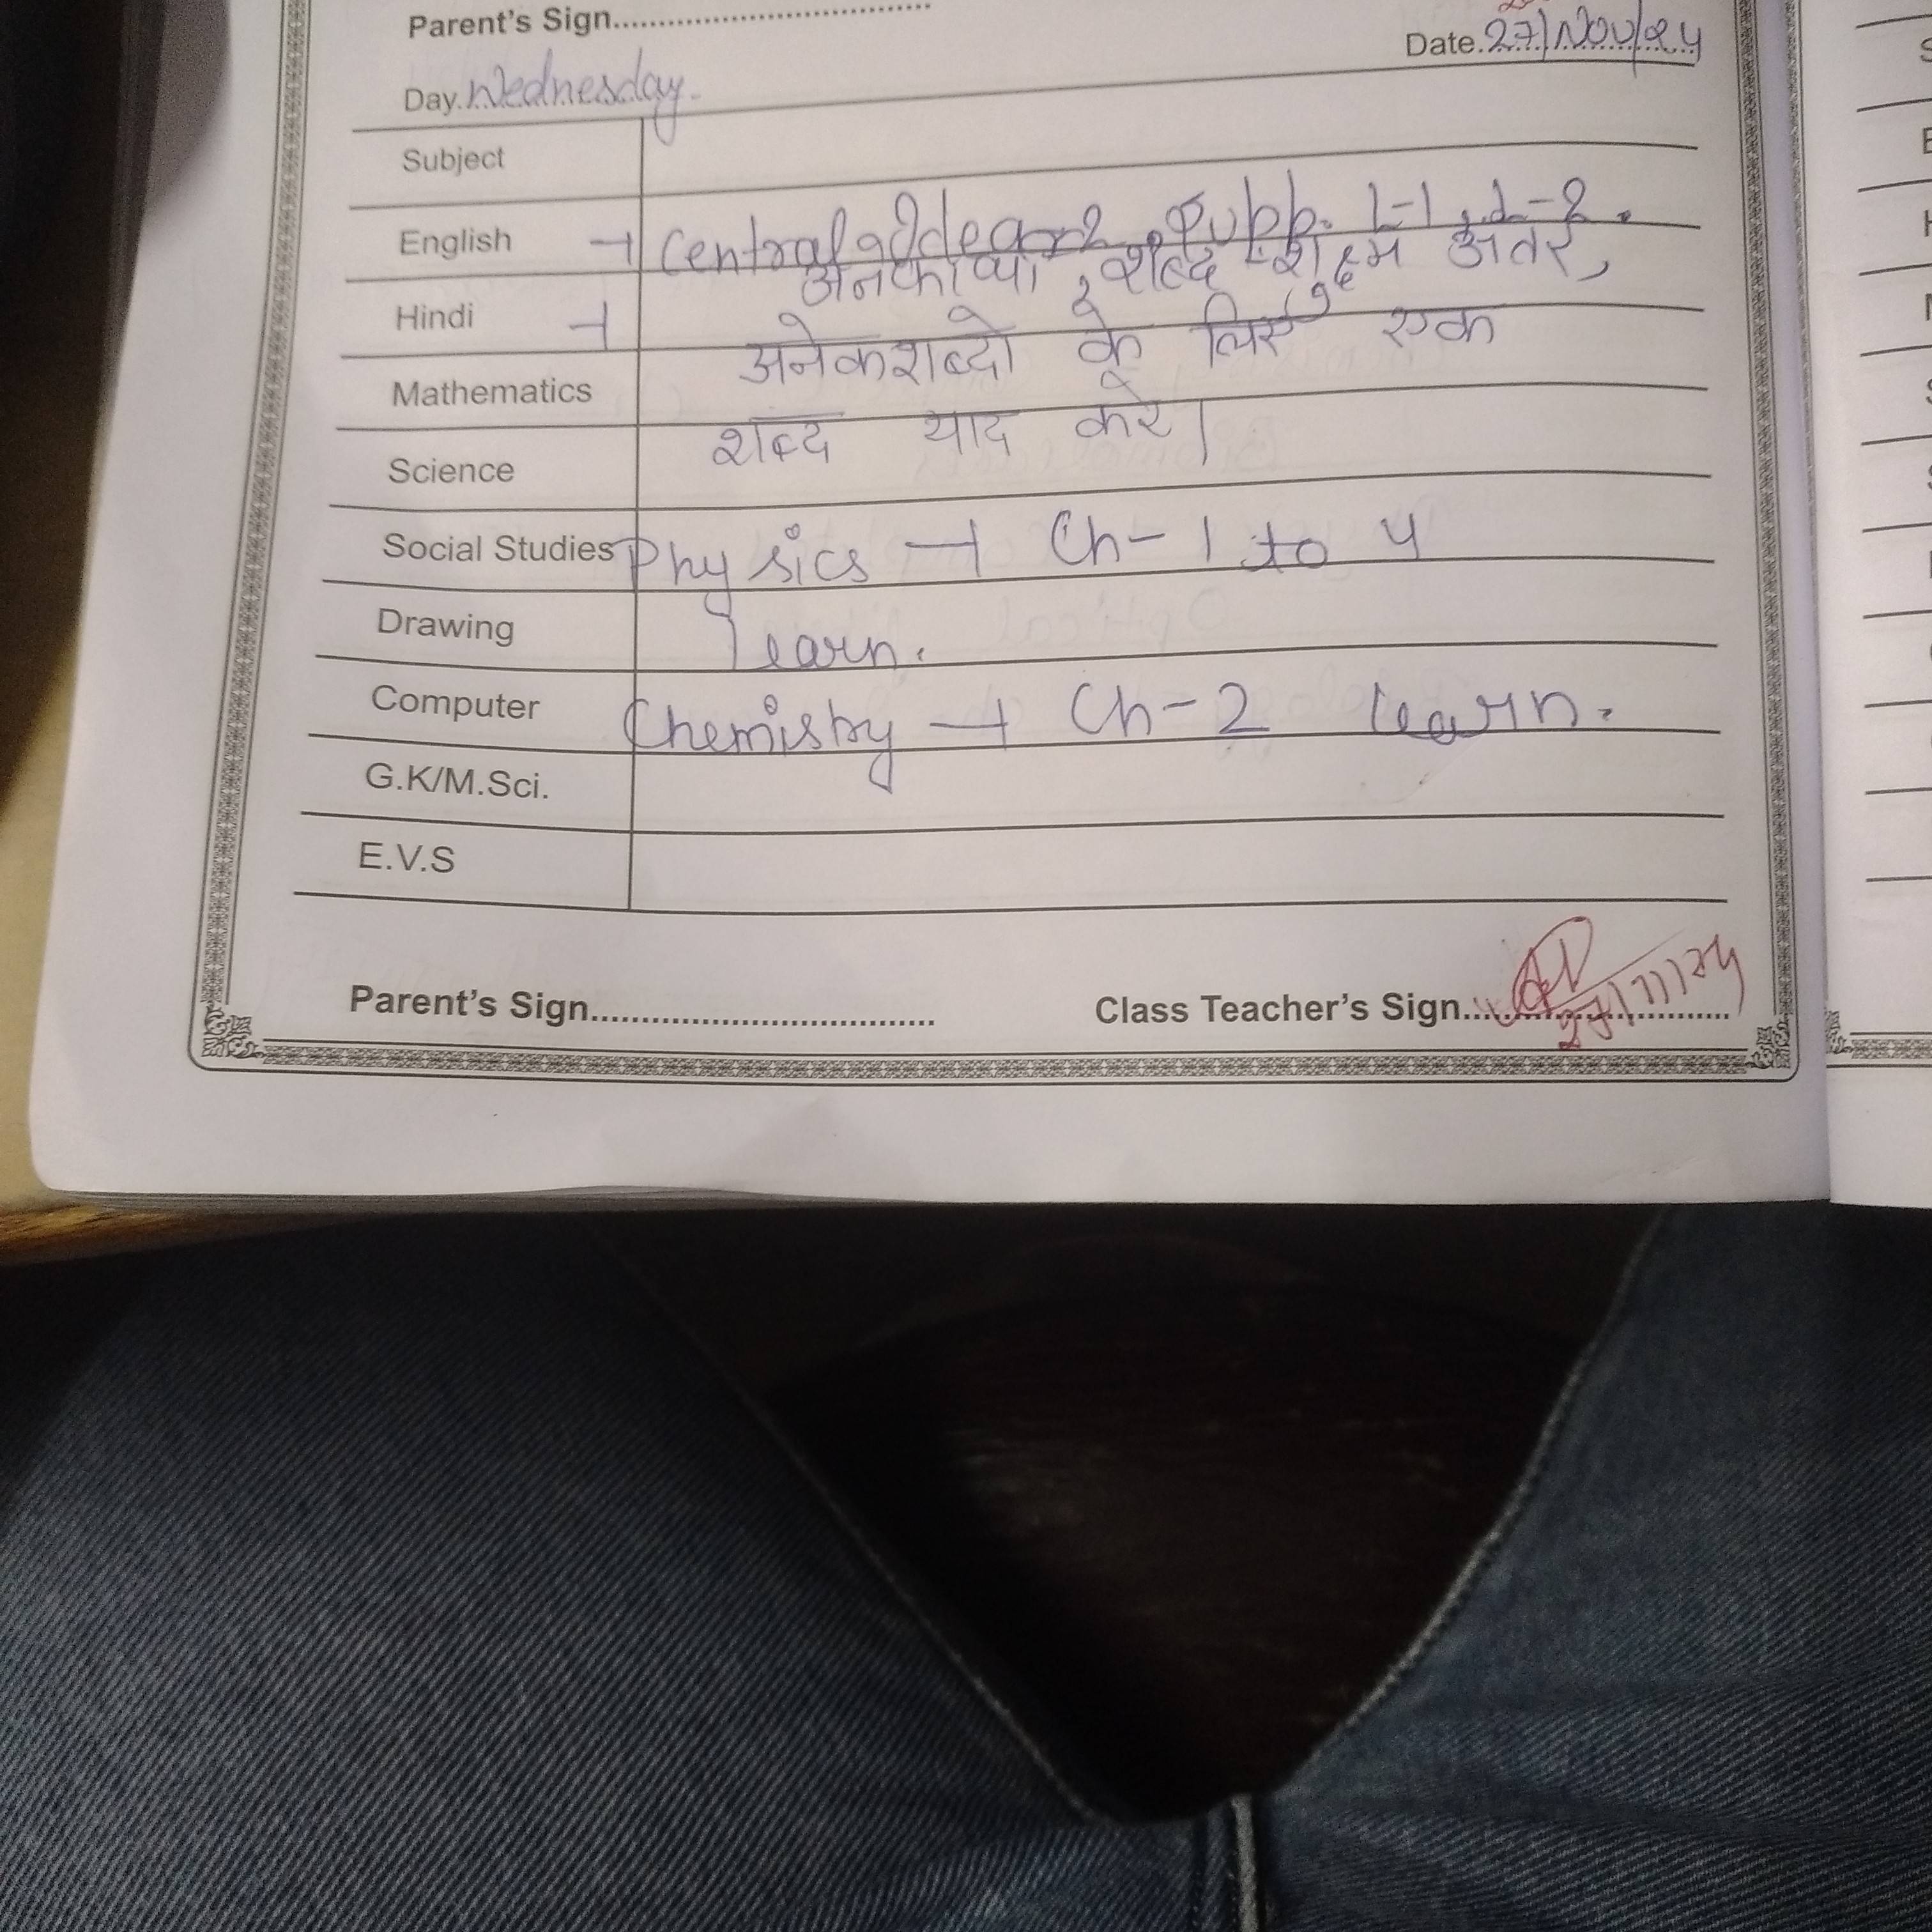 Parent's Sign....................................
Date.27/Nov/24
Day.Wednesday.
Subject
English → Central Idea Supp. L-1, L-2.
अनेकार्थी, शब्द अंतर,
Hindi → अनेकशब्दो के लिए एक
Mathematics
शब्द याद करे।
Science
Social Studies Physics → Ch-1 to 4
Drawing learn.
Computer Chemistry → Ch-2 learn.
G.K/M.Sci.
E.V.S
Parent's Sign.................................. Class Teacher's Sign............................
27/11/24